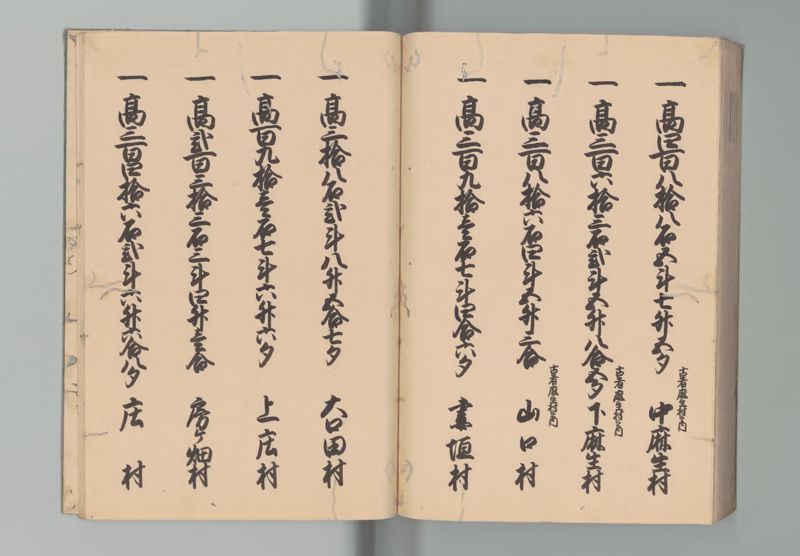 一高四百八拾八石五斗七升五夕
古者麻生村之内
中麻生村
一高三百六拾三石弐斗五升八合五夕
古者麻生村之内
下麻生村
一高三百八拾六石四斗五升三合
古者麻生村之内
山口村
一高三百九拾壱石七斗四合六夕
書垣村
一高三拾八石弐斗八升五合七夕
大口田村
一高百九拾壱石七斗六升六夕
上庄村
一高弐百三拾三石三斗四升壱合
房ケ畑村
一高三百四拾六石弐斗六升六合八夕
庄村